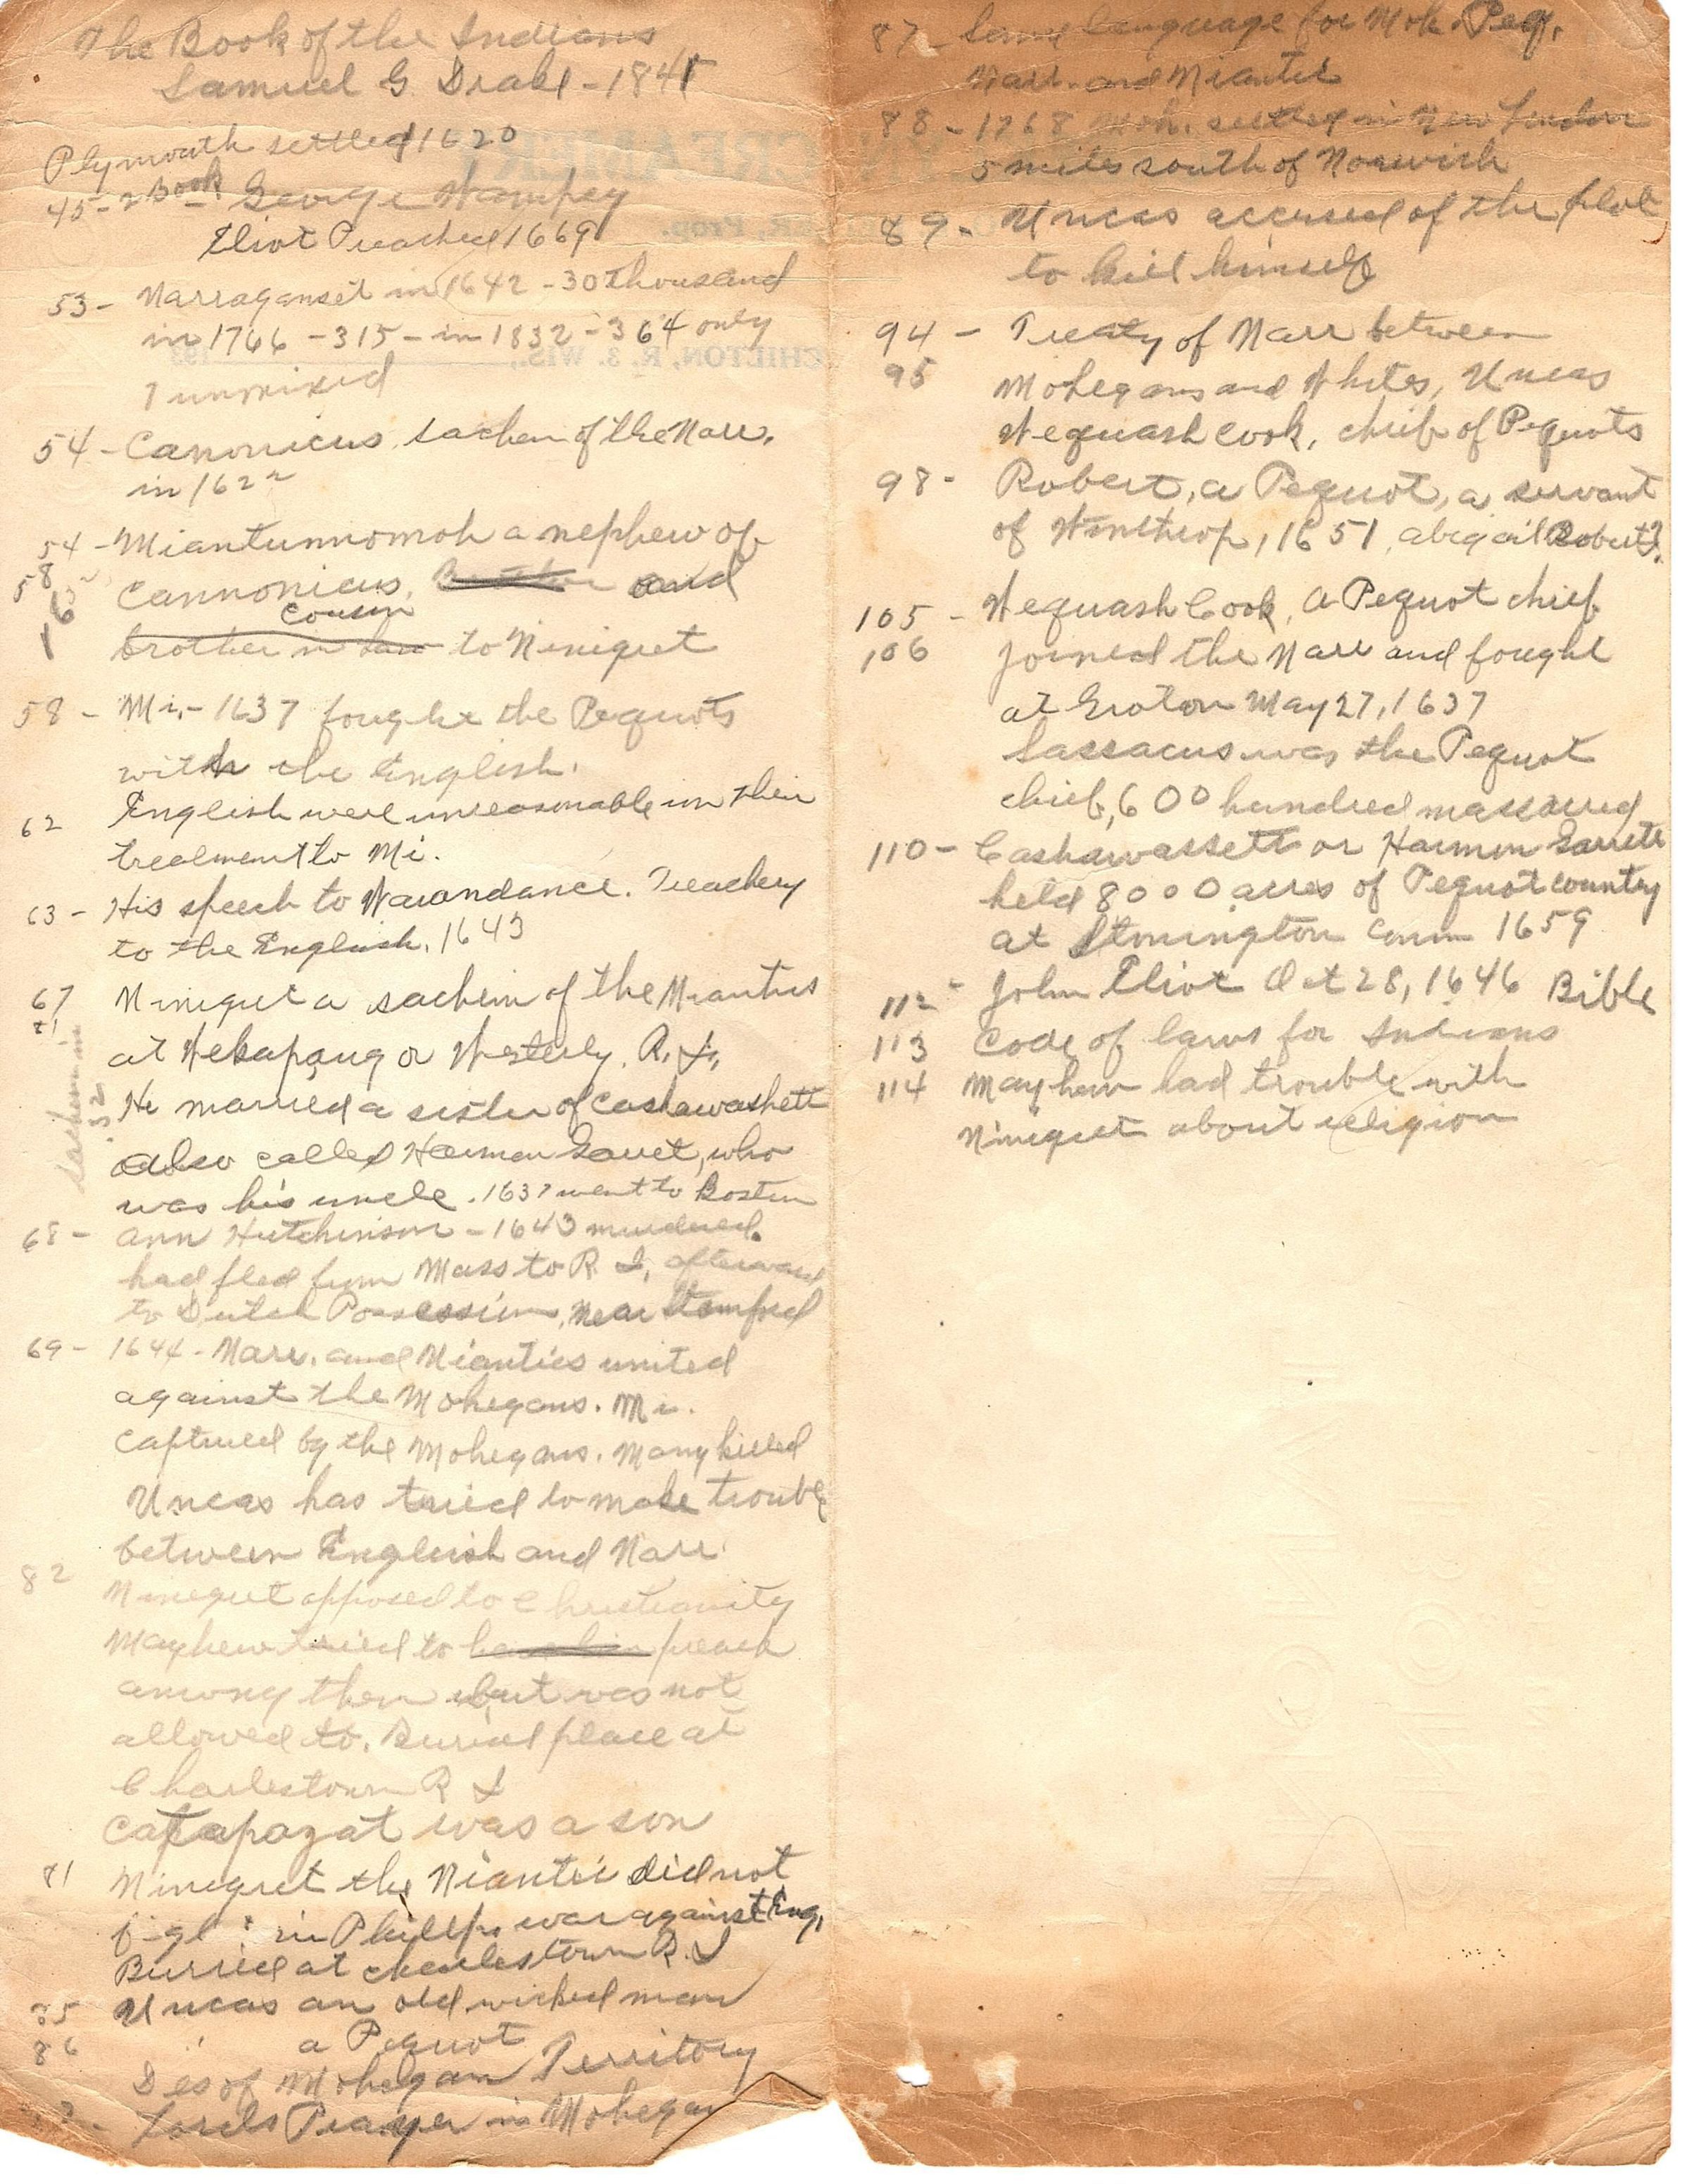 The Book of the Indians
Samuel G Drake - 1841
Plymouth settled 1620
45 - 2 Book - George Wampey
Eliot Preached 1669
53 - Narraganset in 1642 - 30 thousand
in 1766 - 315 - in 1832 - 364 only
7 unmixed
54 - Canonicus sachem of the Narr.
in 1622
54 - Miantunnomoh a nephew of
58 Cannonicus, and
163
Cousin
brother in law to Ninigret
58 - Mi. - 1637 fought the Pequots
with the English.
62 English were unreasonable in their
treatment to Mi.
63 - His speech to Warandance. Treachery
to the English, 1643
67 Ninigret a sachem of the Niantics
at Wekapaug or Westerly, R. I.
sachem in 32
He married a sister of Cashawashett
also called Harmon Garret, who
was his uncle. 1637 went to Boston
68 - Ann Hutchinson - 1643 murdered.
had fled from Mass to R. I, afterward
to Dutch Possession, near Stamford
69 - 1644 - Narr. and Niantics united
against the Mohegans. Mi.
captured by the Mohegans. Many killed
Uncas has tried to make trouble
between English and Narr.
82 Ninegret opposed to Christianity
Mayhew tried to preach
among them but was not
allowed to. Burial place at
Charlestown R I
Catapazat was a son
81 Ninegret the Niantic did not
fight in Phillps war against Eng,
Burried at charlestown R. I
85 Uncas an old wicked man
86 a Pequot
Des of Mohegan Territory
Lords Prayer in Mohegan
87 - Same language for Moh. Peq.
Narr. and Niantic
88 - 1768 Moh. settled in New London
5 miles south of Norwich
89 - Uncas accused of the plot
to kill himself
94 - Treaty of Narr between
95 Mohegans and Whites, Uncas
Wequash Cook, chief of Pequots
98 - Robert, a Pequot, a servant
of Winthrop, 1651, abigail Robert?
105 - Wequash Cook, a Pequot chief
106 joined the Narr and fought
at Groton May 27, 1637
Sassacus was the Pequot
chief, 600 hundred massacred
110 - Cashawassett or Harmon Garrett
held 8000 acres of Pequot country
at Stonington Conn 1659
112 - John Eliot Oct 28, 1646 Bible
113 Code of laws for Indians
114 Mayhew had trouble with
Ninigret about religion